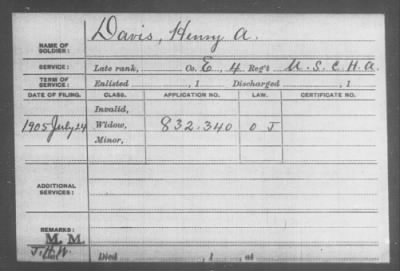 NAME OF SOLDIER: Davis, Henry A.
SERVICE: Late rank, Co. E, 4 Reg't U. S. C. H. A.
TERM OF SERVICE: Enlisted , 1 Discharged , 1
DATE OF FILING. CLASS. APPLICATION NO. LAW. CERTIFICATE NO.
Invalid,
1905 July 24 Widow, 832.340 O J
Minor,
ADDITIONAL SERVICES:
REMARKS:
M. M.
Died , 1 , at